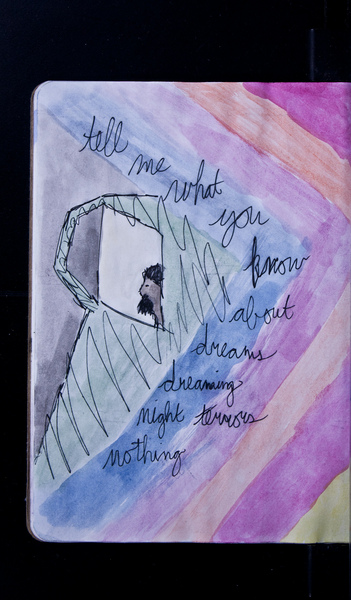 tell me what you know
about
dreams
dreaming
night terrors
nothing